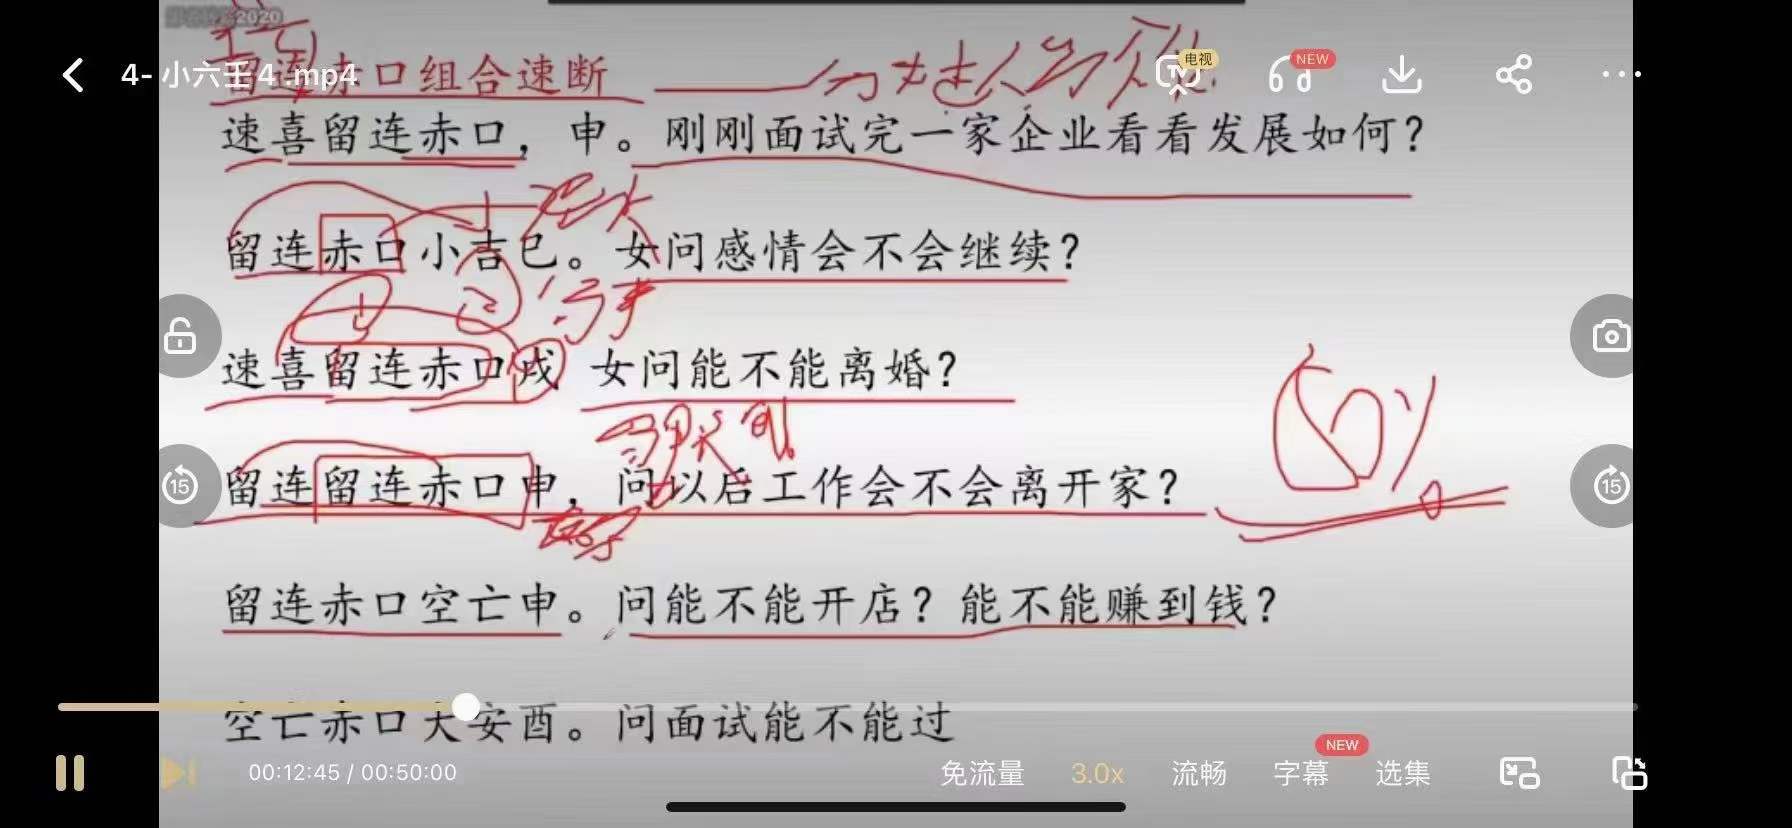 2020
4- 小六壬４.mp4
电视
NEW
留连赤口组合速断
速喜留连赤口，申。刚刚面试完一家企业看看发展如何？
留连赤口小吉巳。女问感情会不会继续？
速喜留连赤口戌 女问能不能离婚？
50%
15
留连留连赤口申，问以后工作会不会离开家？
15
留连赤口空亡申。问能不能开店？能不能赚到钱？
空亡赤口大安酉。问面试能不能过
00:12:45 / 00:50:00
免流量
3.0x
流畅
字幕
NEW
选集